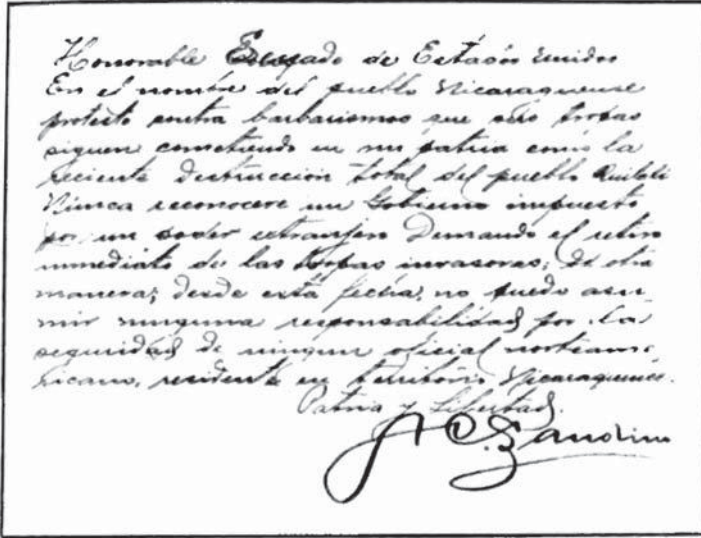 Honorable Senado de Estados Unidos
En el nombre del pueblo Nicaraguense
protesto contra barbarismos que sus tropas
siguen cometiendo en mi patria como la
reciente destruccion total del pueblo Quilali
Nunca reconocere un Gobierno impuesto
por un poder extranjero Demando el retiro
inmediato de las tropas invasoras; de otra
manera; desde esta fecha, no puedo asu-
mir ninguna responsabilidad por la
seguridad de ningun oficial norteame-
ricano, residente en territorio Nicaraguense.
Patria y Libertad.
A C. Sandino